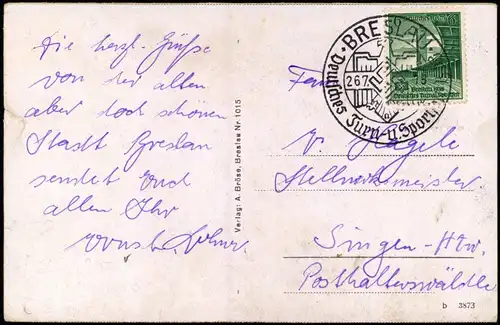 Die herzl. Grüße
von der alten
aber doch schönen
Stadt Breslau
sendet Euch
allen Ihr
Verlag: A. Bröse, Breslau Nr 1015
BRESLAU
Deutsches Turn- u. Sport
26.7.
Fam.
V. Hägele
Stellwerksmeister
Singen-Htw.
Posthalterswäldle
b 3873